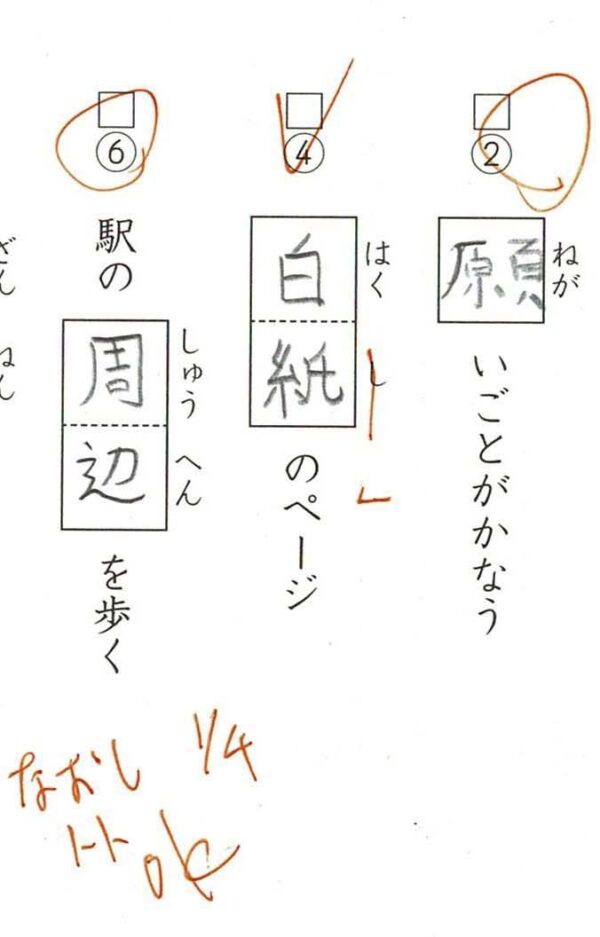 ②
願いごとがかなう
ねが
④
白紙のページ
はくし
⑥
駅の周辺を歩く
しゅうへん
ざん
ねん
なおし 1/4
トート
OK